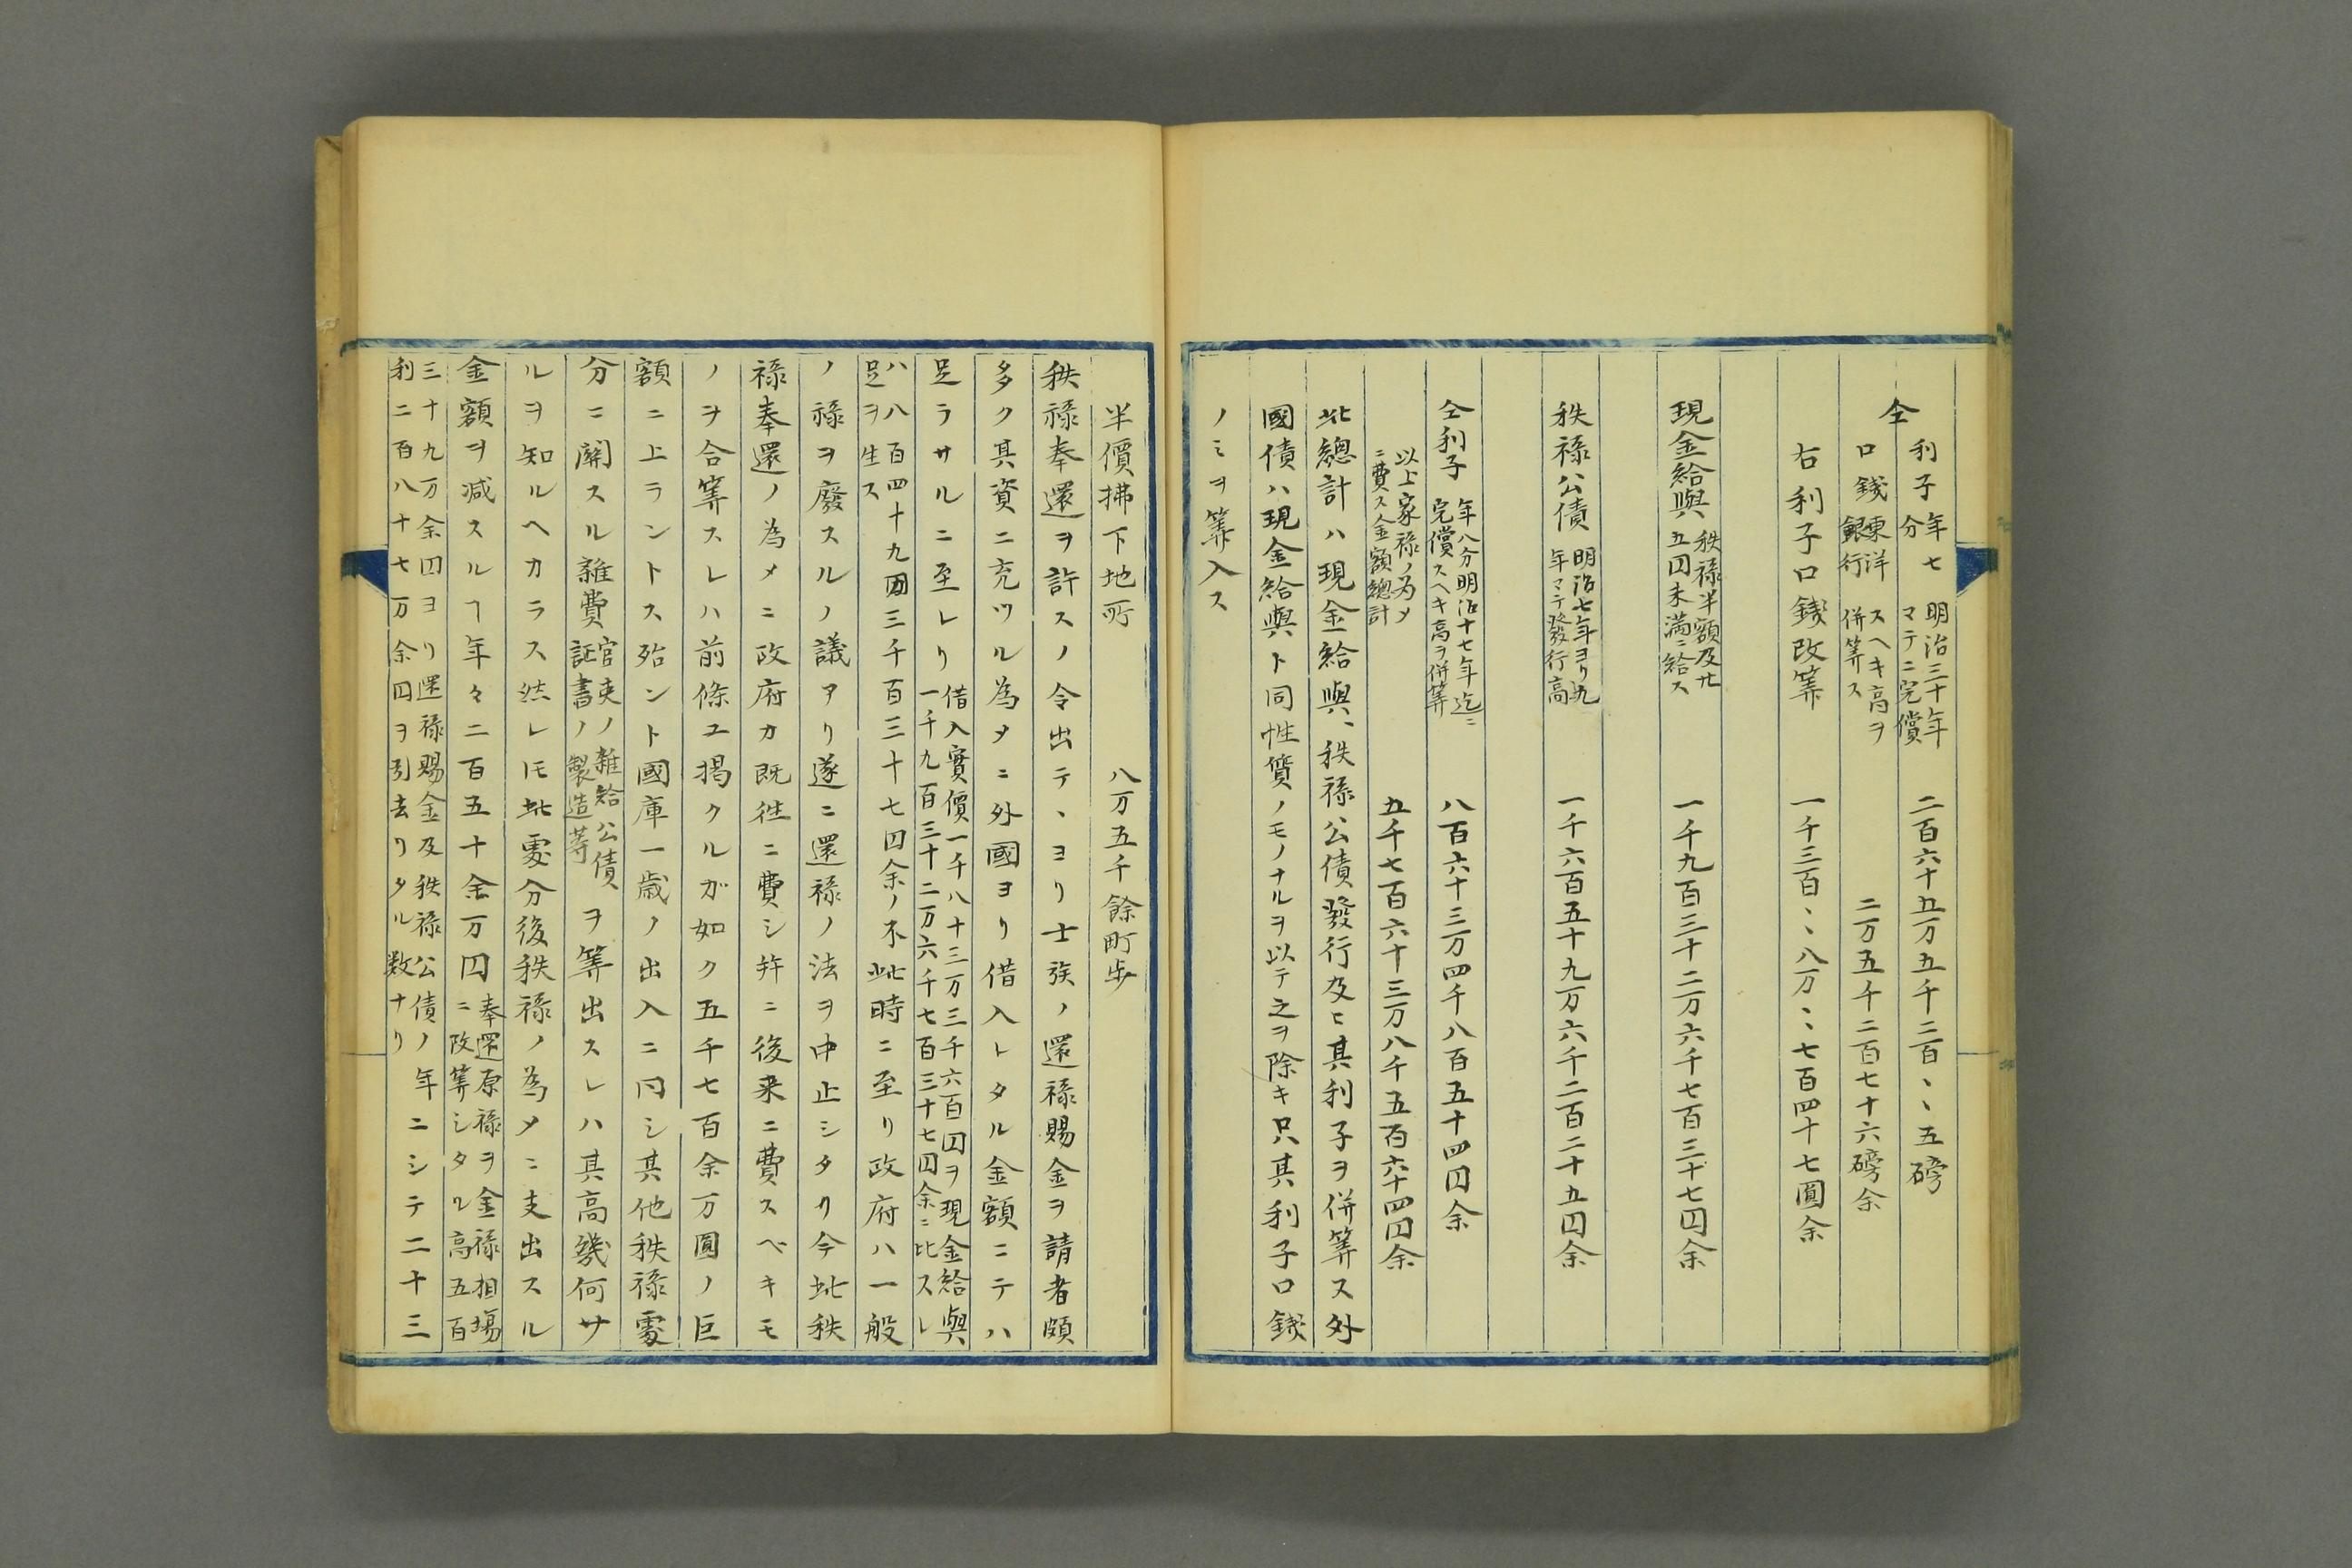 仝 利子 年七分 明治三十年マテニ完償 二百六十五万五千二百〻五磅
口錢 東洋銀行 スヘキ高ヲ併算ス 二万五千二百七十六磅余
右利子口錢改算 一千三百〻八万〻七百四十七圓余
現金給與 秩禄半額及廿五円未満ニ給ス 一千九百三十二万六千七百三十七円余
秩禄公債 明治七年ヨリ九年マテ發行高 一千六百五十九万六千二百二十五円余
仝利子 年八分明治十七年迄ニ完償スヘキ高ヲ併算 八百六十三万四千八百五十四円余
以上家禄ノ為メニ費ス金額總計 五千七百六十三万八千五百六十四円余
此總計ハ現金給與、秩禄公債發行及ヒ其利子ヲ併算ス外
國債ハ現金給與ト同性質ノモノナルヲ以テ之ヲ除キ只其利子口錢
ノミヲ算入ス
半價拂下地所 八万五千餘町歩
秩禄奉還ヲ許スノ令出テ、ヨリ士族ノ還禄賜金ヲ請者頗
多ク其資ニ充ツル為メニ外國ヨリ借入レタル金額ニテハ
足ラサルニ至レリ 借入實價一千八十三万三千六百円ヲ現金給與
一千九百三十二万六千七百三十七円余ニ比スレ
ハ八百四十九万三千百三十七円余ノ不
足ヲ生ス 此時ニ至リ政府ハ一般
ノ禄ヲ廢スルノ議アリ遂ニ還禄ノ法ヲ中止シタリ今此秩
禄奉還ノ為メニ政府カ既徃ニ費シ并ニ後来ニ費スベキモ
ノヲ合算スレハ前條ニ掲クルガ如ク五千七百余万圓ノ巨
額ニ上ラントス殆ント國庫一歳ノ出入ニ同シ其他秩禄處
分ニ關スル雑費 官吏ノ雑給公債証書ノ製造等 ヲ算出スレハ其高幾何サ
ルヲ知ルヘカラス然レ𪜈此處分後秩禄ノ為メニ支出スル
金額ヲ減スルヿ年々二百五十余万円 奉還原禄ヲ金禄相場
ニ改算シタル高五百
三十九万余円ヨリ還禄賜金及秩禄公債ノ年
利二百八十七万余円ヲ引去リタル数ナリ ニシテ二十三